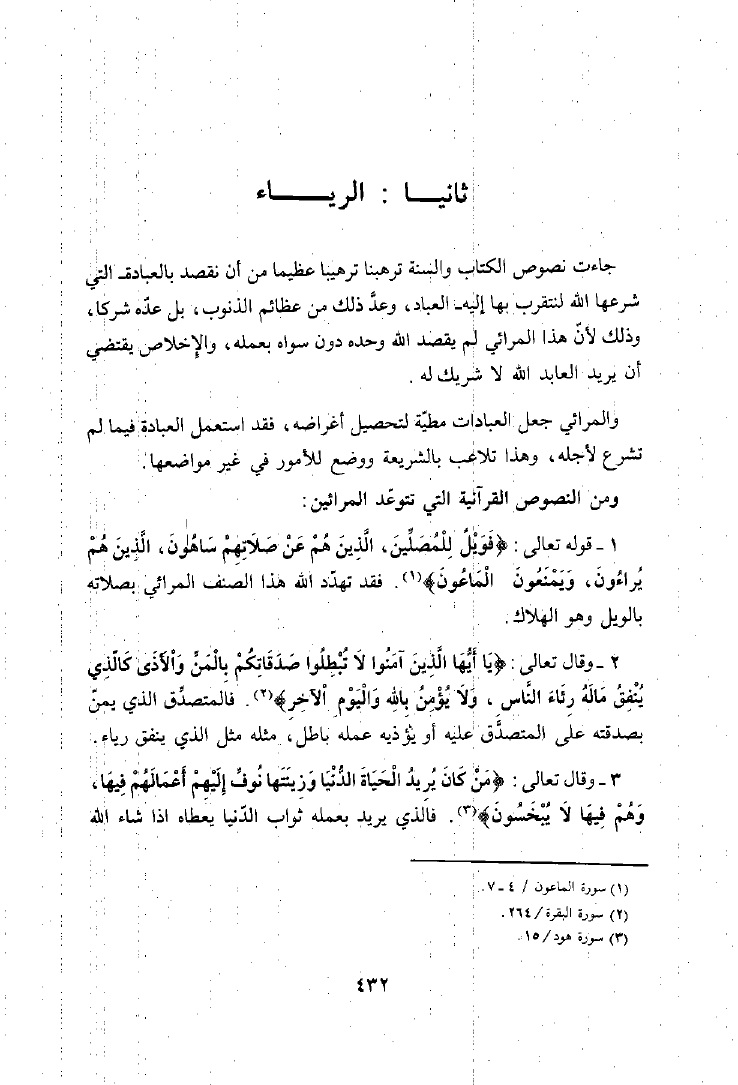 ثانيــا : الريـــــاء
جاءت نصوص الكتاب والسنة ترهبنا ترهيبا عظيما من أن نقصد بالعبادة ـ التي
شرعها الله لنتقرب بها إليه ـ العباد، وعدَّ ذلك من عظائم الذنوب، بل عدّه شركا،
وذلك لأنّ هذا المرائي لم يقصد الله وحده دون سواه بعمله، والإخلاص يقتضي
أن يريد العابد الله لا شريك له .
والمرائي جعل العبادات مطيّة لتحصيل أغراضه، فقد استعمل العبادة فيما لم
تشرع لأجله، وهذا تلاعب بالشريعة ووضع للأمور في غير مواضعها.
ومن النصوص القرآنية التي تتوعّد المرائين:
١ ـ قوله تعالى: ﴿فَوَيْلٌ لِلْمُصَلِّينَ، الَّذِينَ هُمْ عَنْ صَلَاتِهِمْ سَاهُونَ، الَّذِينَ هُمْ
يُراءُونَ، وَيَمْنَعُونَ الْمَاعُونَ﴾(١). فقد تهدّد الله هذا الصنف المرائي بصلاته
بالويل وهو الهلاك.
٢ ـ وقال تعالى: ﴿يَا أَيُّهَا الَّذِينَ آمَنُوا لَا تُبْطِلُوا صَدَقَاتِكُمْ بِالْمَنِّ وَالْأَذَى كَالَّذِي
يُنْفِقُ مَالَهُ رِئَاءَ النَّاسِ، وَلَا يُؤْمِنُ بِاللهِ وَالْيَوْمِ الْآخِرِ﴾(٢). فالمتصدِّق الذي يمنّ
بصدقته على المتصدَّق عليه أو يؤذيه عمله باطل، مثله مثل الذي ينفق رياء.
٣ ـ وقال تعالى: ﴿مَنْ كَانَ يُرِيدُ الْحَيَاةَ الدُّنْيَا وَزِينَتَها نُوفِّ إِلَيْهِمْ أَعْمَالَهُمْ فِيهَا،
وَهُمْ فِيهَا لَا يُبْخَسُونَ﴾(٣). فالذي يريد بعمله ثواب الدّنيا يعطاه اذا شاء الله
(١) سورة الماعون / ٤ ـ ٧.
(٢) سورة البقرة / ٢٦٤.
(٣) سورة هود / ١٥.
٤٣٢